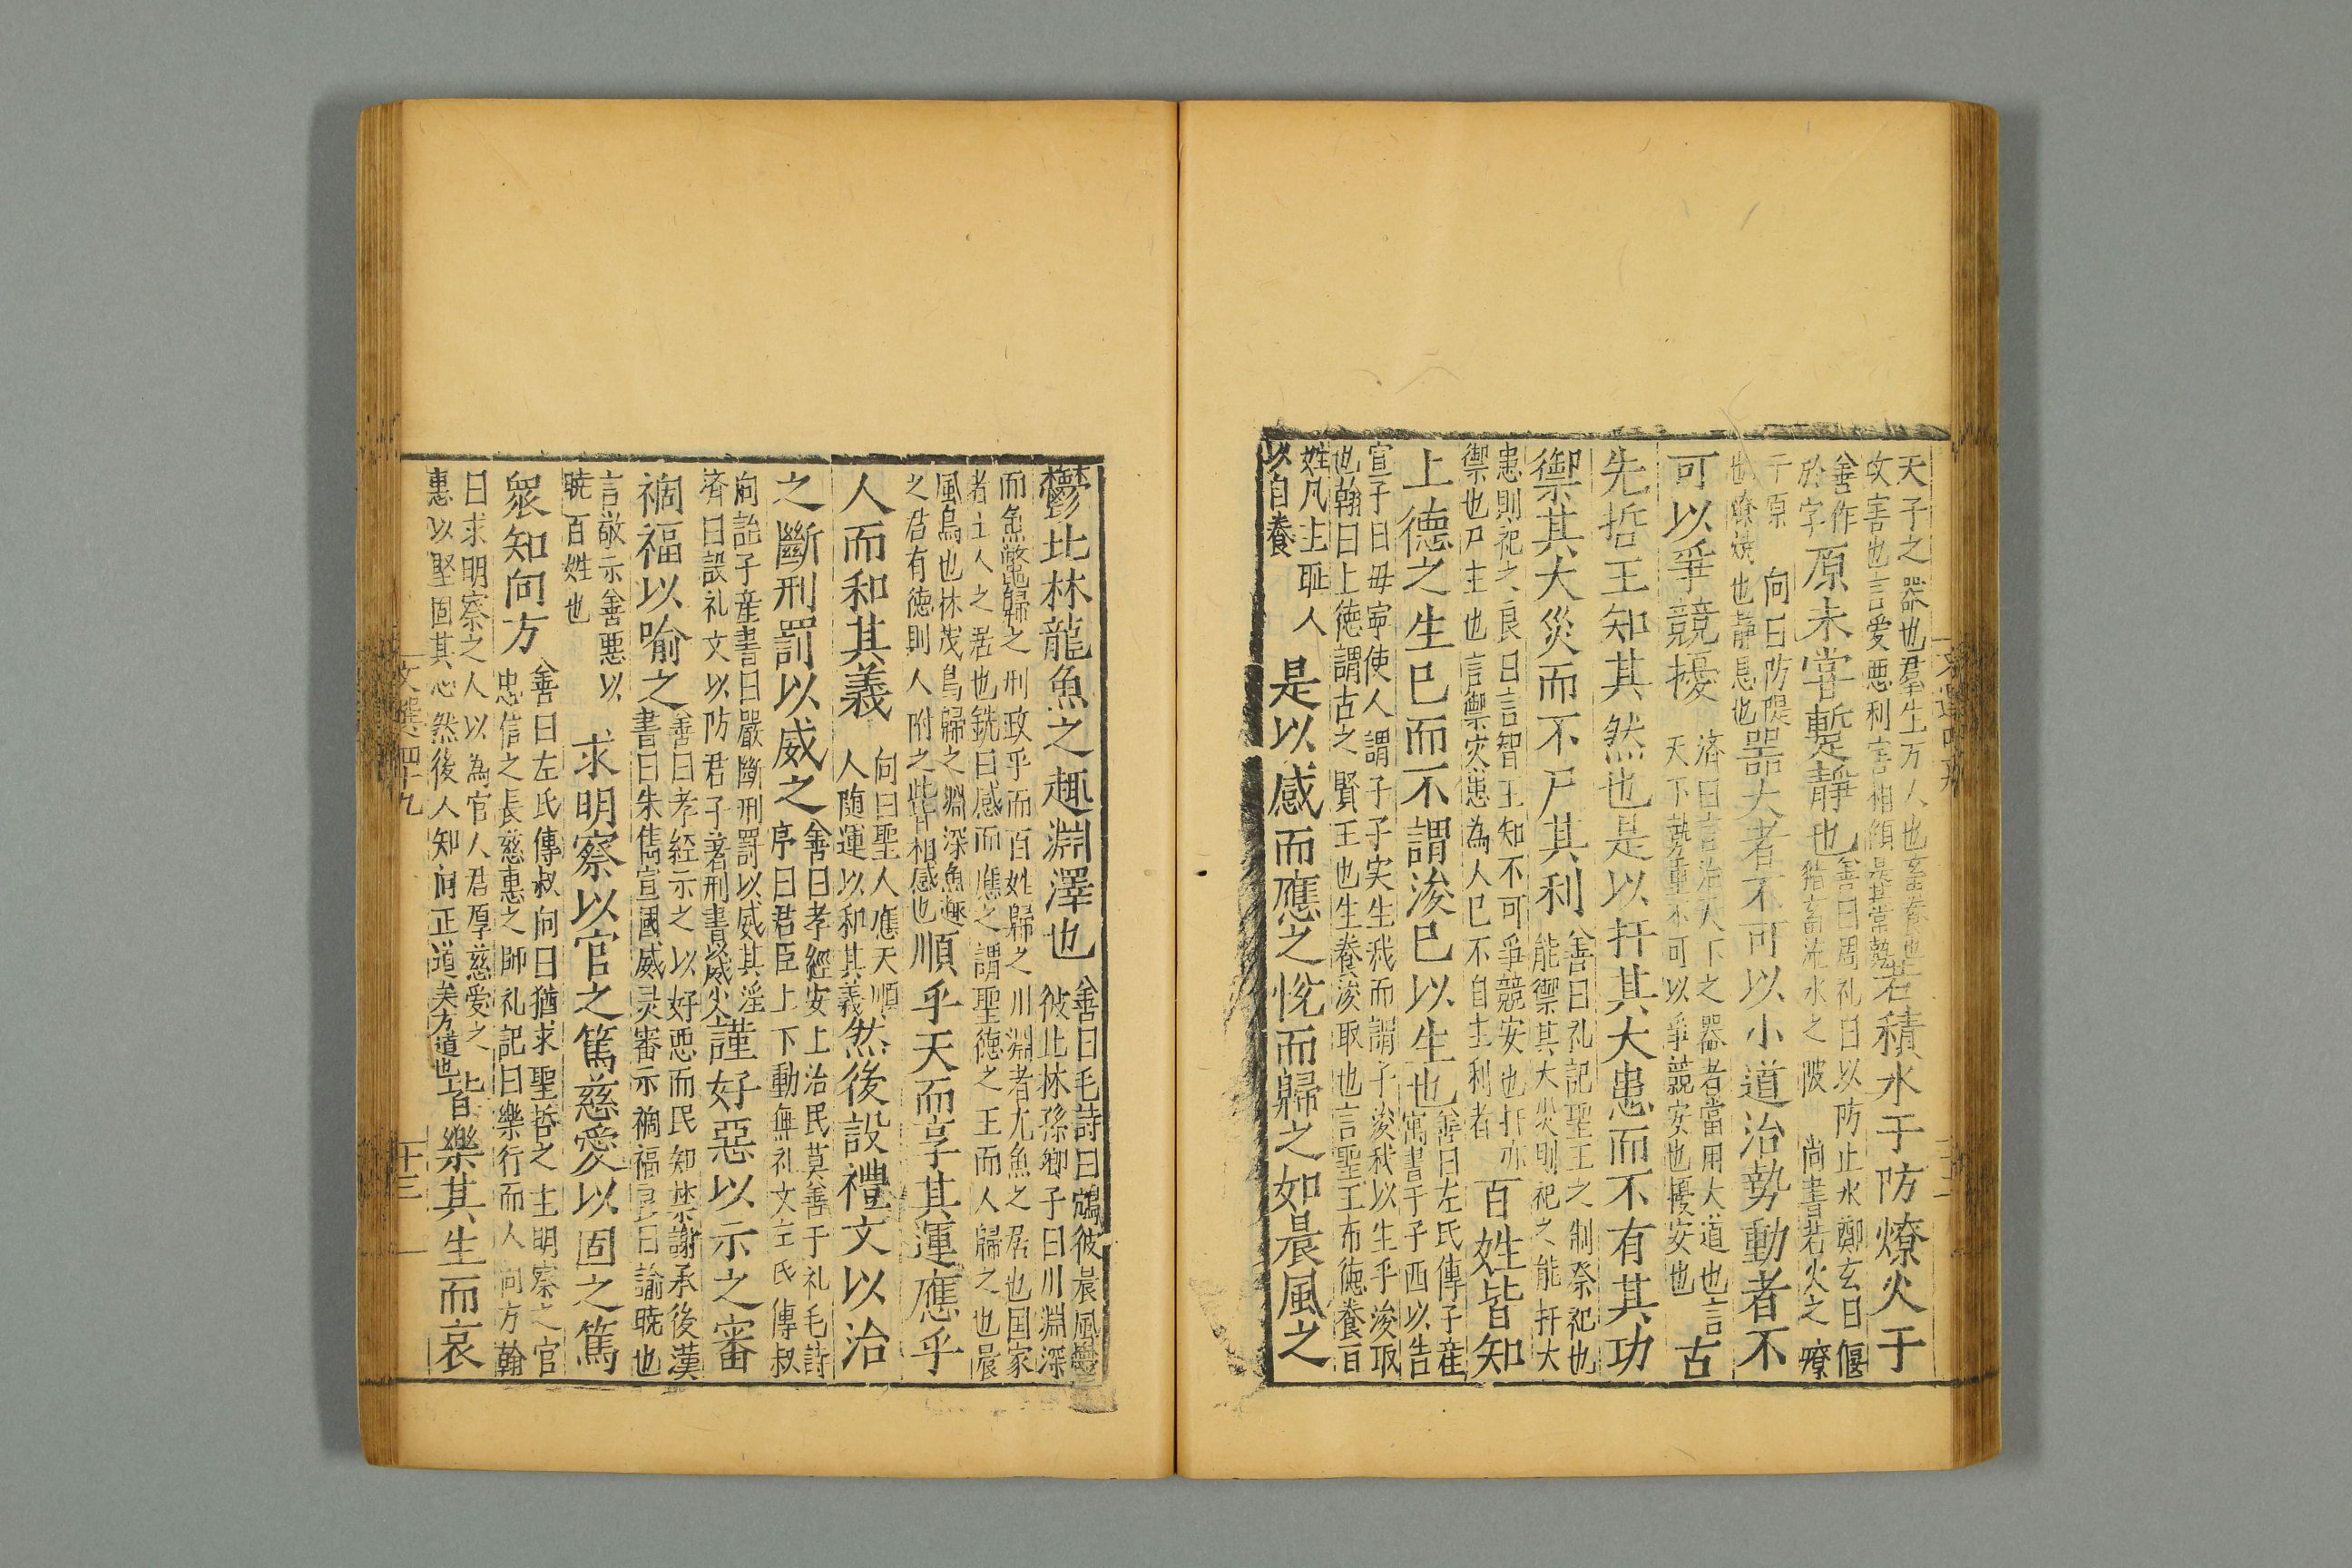 天子之器也羣生万人也畜養也
攻害也言愛悪利害相傾是其常勢若積水于防燎火于
善作於字原未甞蹔靜也善曰周礼曰以防止水鄭玄曰偃猪畜流水之陂尚書若火之燎
于原向曰防隄也燎焼也静息也器大者不可以小道治勢動者不
可以爭競擾済曰言治天下之器者當用大道也言天下勢重不可以爭競安也擾安也古
先哲王知其然也是以扞其大患而不有其功
禦其大災而不尸其利善曰礼記聖王之制祭祀也能禦其大災則祀之能扞大
患則祀之良曰言智王知不可爭競安也扞亦禦也尸主也言禦灾患為人已不自主利者百姓皆知
上德之生已而不謂浚已以生也善曰左氏傳子産寓書于子西以告
宣子曰毋寕使人謂子子実生我而謂子浚我以生乎浚取
也翰曰上徳謂古之賢王也生養浚取也言聖王布徳養百
姓凡主耻人以自養是以感而應之悅而歸之如晨風之
鬱北林龍魚之趣淵澤也善曰毛詩曰鴥彼晨風鬱彼北林孫卿子曰川淵深
而魚鼈歸之刑政乎而百姓歸之川淵者尤魚之居也国家
者士人之居也銑曰感而應之謂聖徳之王而人歸之也晨
風鳥也林茂鳥歸之淵深魚趣之君有徳則人附之此皆相感也順乎天而享其運應乎
人而和其義向曰聖人應天順人随運以和其義然後設禮文以治
之斷刑罰以威之善曰孝經安上治民莫善于礼毛詩序曰君臣上下動無礼文左氏傳叔
向詒子産書曰嚴斷刑罰以威其淫済曰設礼文以防君子著刑書以威小謹好惡以示之審
禍福以喻之善曰孝経示之以好悪而民知禁謝承後漢書曰朱雋宣國威灵審示禍福良曰諭暁也
言敬示善悪以暁百姓也求明察以官之篤慈愛以固之篤
衆知向方善曰左氏傳叔向曰猶求聖哲之主明察之官忠信之長慈惠之師礼記曰樂行而人向方翰
曰求明察之人以為官人君厚慈愛之惠以堅固其心然後人知向正道矣方道也皆樂其生而哀
文選四十九
十三